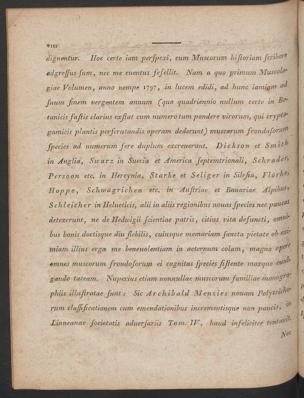 VIII
dignentur. Hoc certe iam perspexi, cum Muscorum historiam scribere
adgressus sum, nec me euentus fefellit. Nam a quo primum Muscolo-
giae Volumen, anno nempe 1797, in lucem edidi, ad hunc iamiam ad
suum finem vergentem annum (quo quadriennio nullum certe in Bo-
tanicis fastis clarius exstat cum numero tum pondere virorum, qui crypto-
gamicis plantis perscrutandis operam dederunt) muscorum frondosorum
species ad numerum fere duplum excreuerunt. Dickson et Smith
in Anglia, Swarz in Suecia et America septemtrionali, Schrader,
Persoon etc. in Hercynia, Starke et Seliger in Silesia, Flörke,
Hoppe, Schwägrichen etc. in Austriae et Bauariae Alpibus,
Schleicher in Helueticis, alii in aliis regionibus nouas species nec paucas
detexerunt, ne de Hedwigii scientiae patris, citius vita defuncti, omni-
bus bonis doctisque diu flebilis, cuiusque memoriam sancta pietate ob exi-
miam illius erga me beneuolentiam in aeternum colam, magno opere
omnes muscorum frondosorum ei cognitas species sistente
gaudio taceam. Nuperius etiam nonnullae muscorum familiae monogra-
phiis illustratae sunt: Sic Archibald Menzies nouam Polytricho-
rum classificationem cum emendationibus incrementisque non paucis, in
Linneanae societatis aduersariis Tom. IV, haud infeliciter tentauit.
Nec